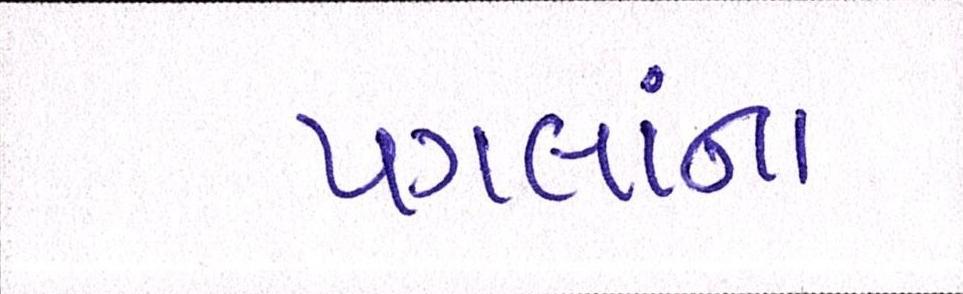 પગલાંના